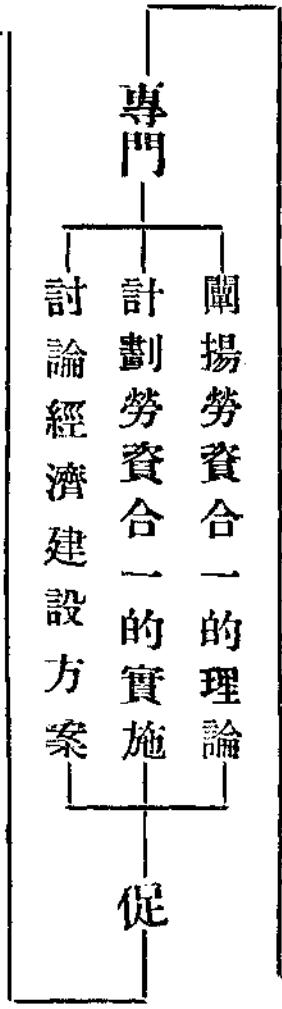 專門
闡揚勞資合一的理論
計劃勞資合一的實施
討論經濟建設方案
促